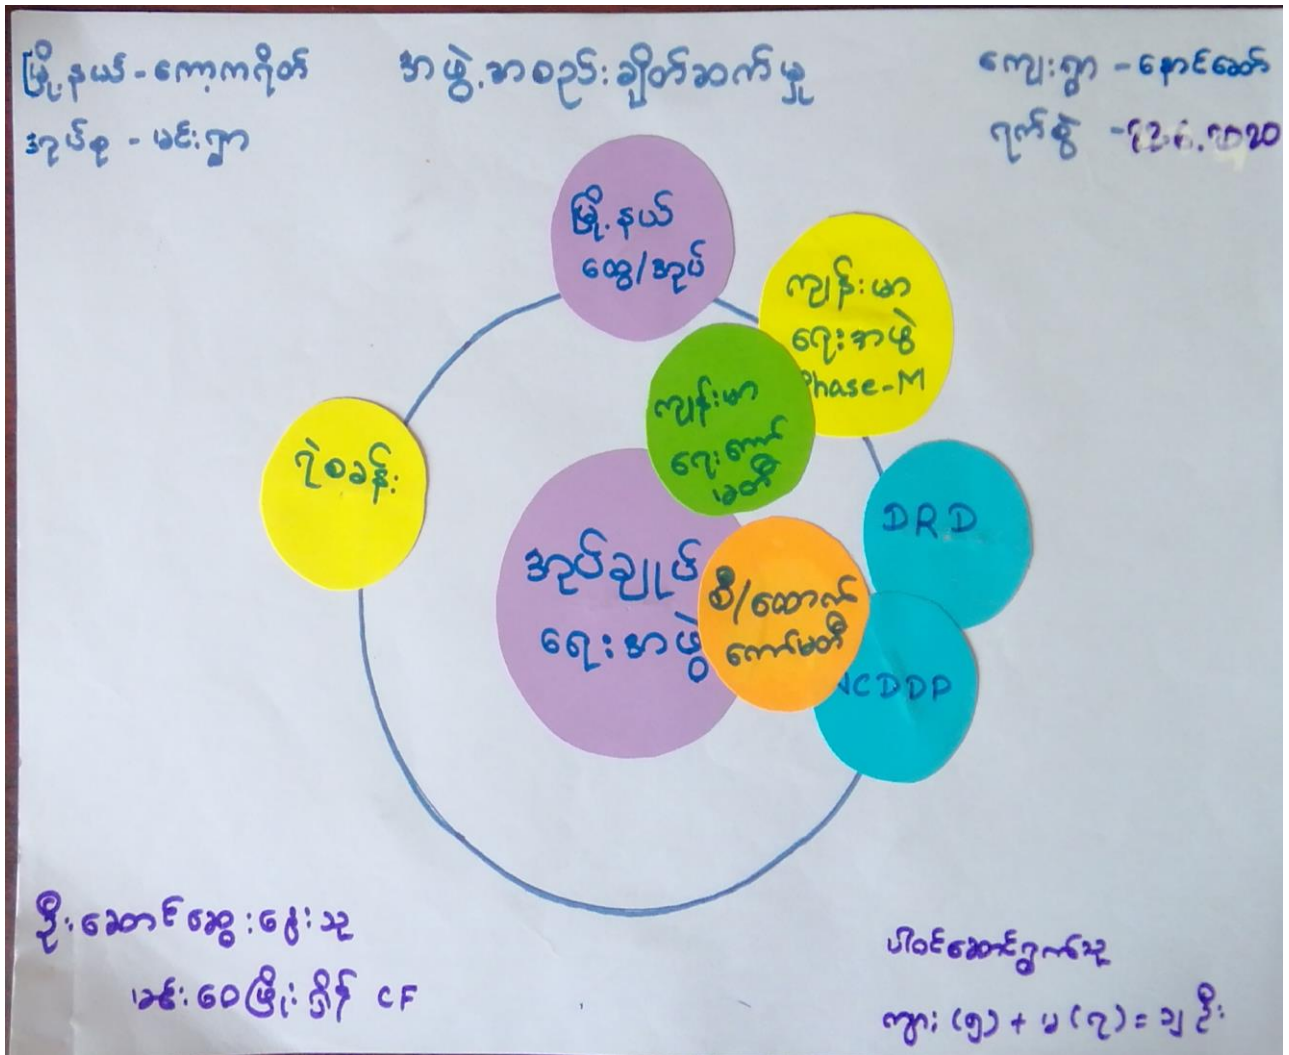 မြို့နယ် - ကော့ကရိတ်
အုပ်စု - မင်းရွာ
အဖွဲ့အစည်းချိတ်ဆက်မှု
ကျေးရွာ - နောင်ဆော်
ရက်စွဲ -
မြို့နယ်
ထွေ/အုပ်
ကျန်းမာ
ရေးအဖွဲ့
Phase-M
ကျန်းမာ
ရေးကော်
မတီ
ရဲစခန်း
DRD
အုပ်ချုပ်
ရေးအဖွဲ့
စီ/ထောက်
ကော်မတီ
NCDDP
ဦးဆောင်ဆွေးနွေးသူ
CF
ပါဝင်ဆောင်ရွက်သူ
ကျား (၅) + မ (၇) = ၁၂ ဦး